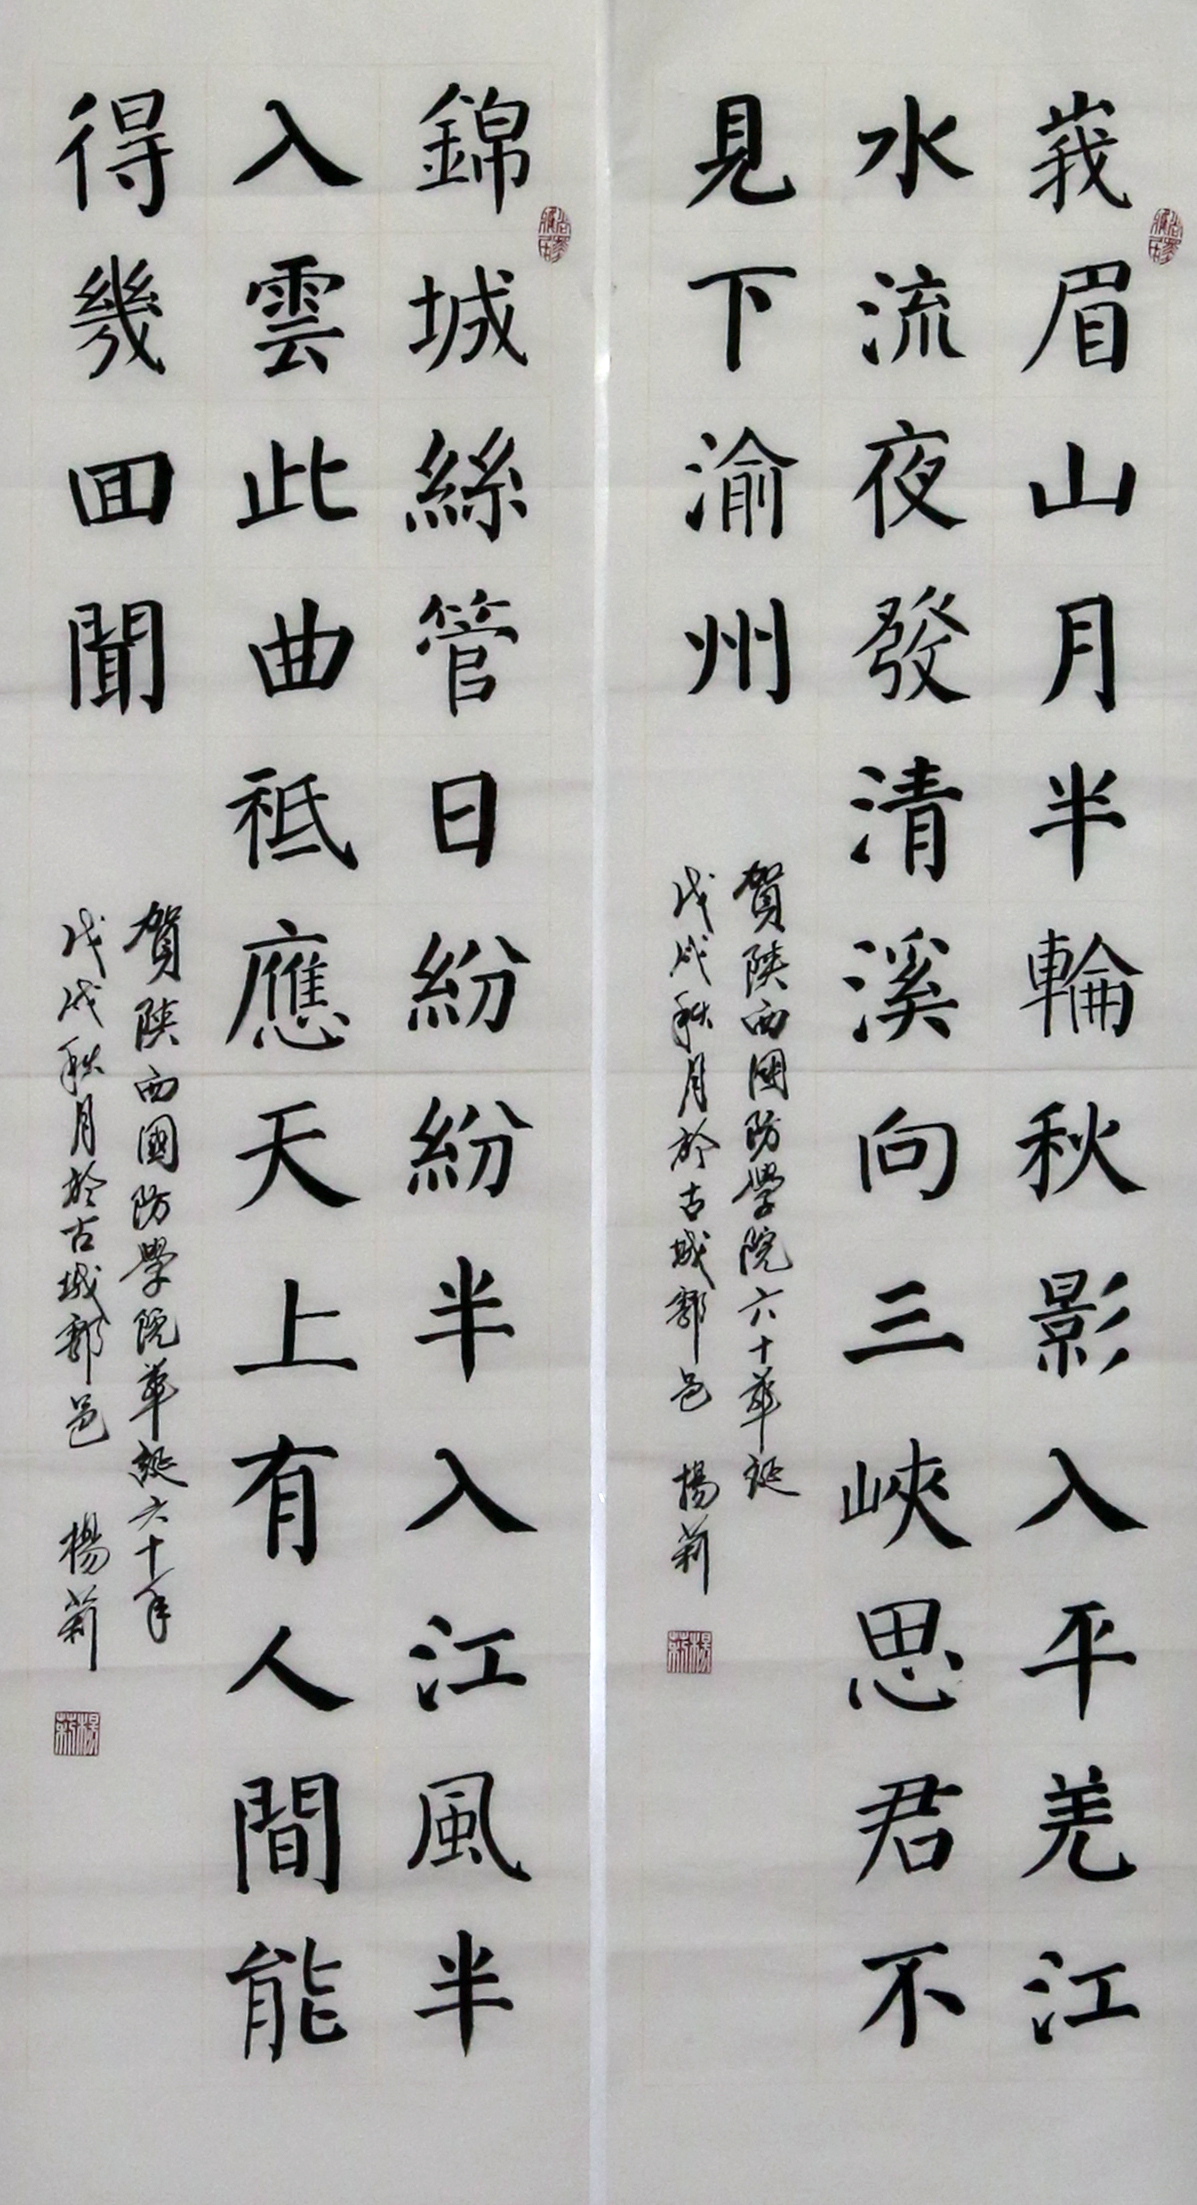 莪眉山月半輪秋影入平羌江
水流夜發清溪向三峽思君不
見下渝州
賀陝西國防學院六十華誕
戊戌秋月於古城鄠邑 楊莉
錦城絲管日紛紛半入江風半
入雲此曲祇應天上有人間能
得幾回聞
賀陝西國防學院華誕六十年
戊戌秋月於古城鄠邑 楊莉